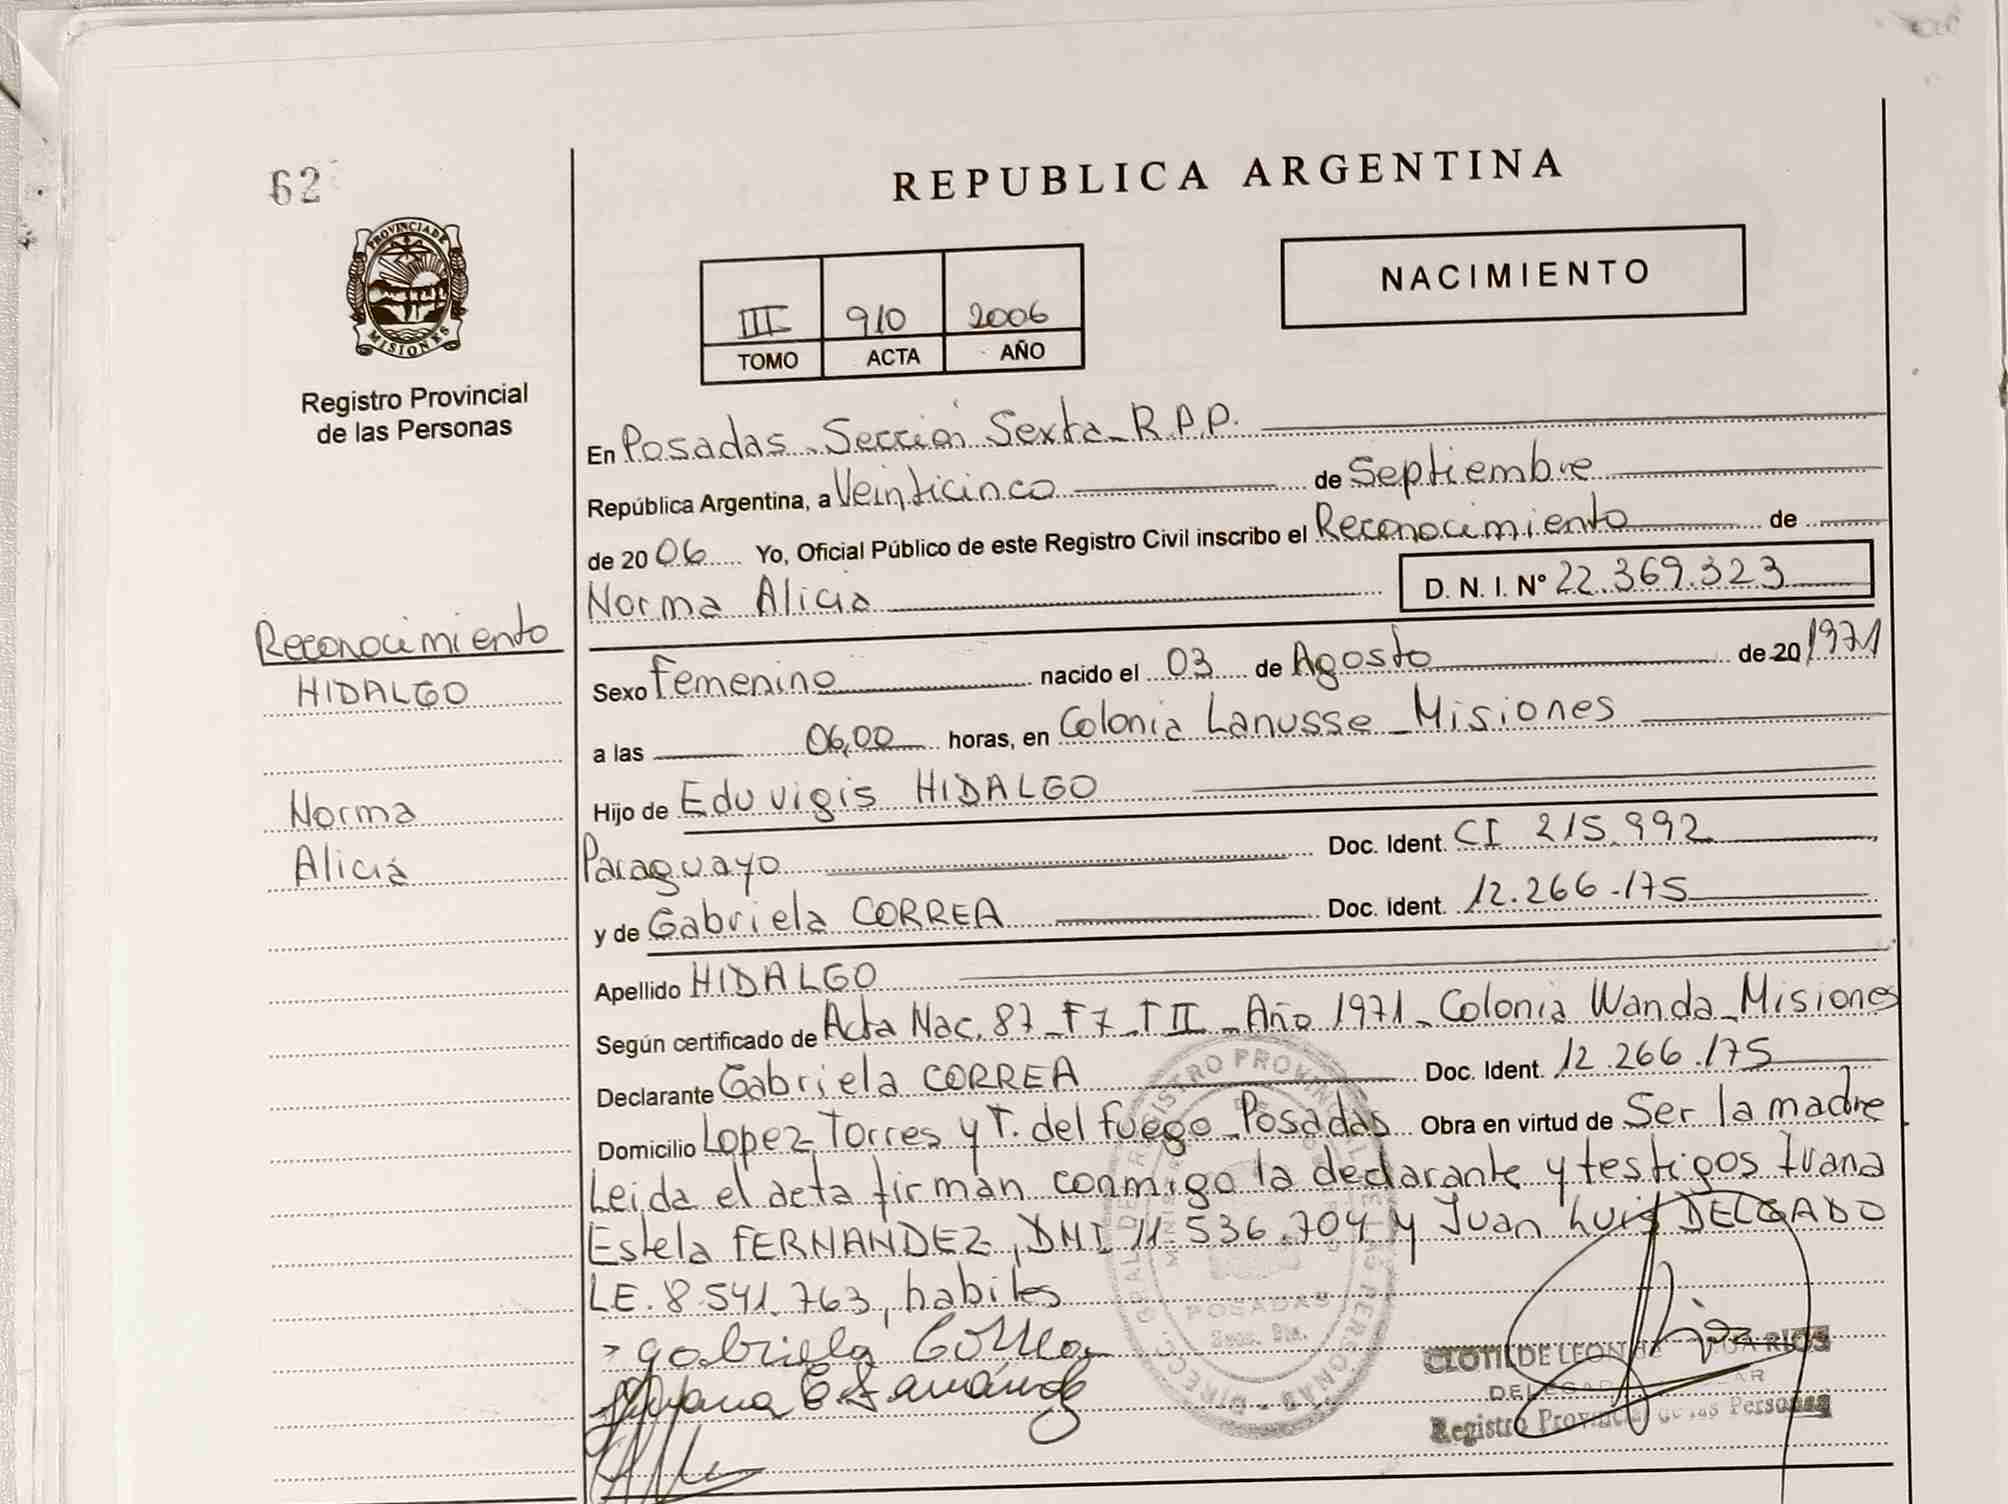 62
REPUBLICA ARGENTINA
PROVINCIA DE
MISIONES
Registro Provincial
de las Personas
III 910 2006
TOMO ACTA AÑO
NACIMIENTO
En Posadas - Sección Sexta - R.P.P.
República Argentina, a Veinticinco de Septiembre
de 2006 Yo, Oficial Público de este Registro Civil inscribo el Reconocimiento de
Norma Alicia D. N. I. Nº 22.369.323
Reconocimiento
HIDALGO
Norma
Alicia
Sexo Femenino nacido el 03 de Agosto de 20 1971
a las 06,00 horas, en Colonia Lanusse - Misiones
Hijo de Eduvigis HIDALGO
Paraguayo Doc. Ident. CI 215.992
y de Gabriela CORREA Doc. Ident. 12.266.175
Apellido HIDALGO
Según certificado de Acta Nac. 87 - F7 - T II - Año 1971 - Colonia Wanda - Misiones
Declarante Gabriela CORREA Doc. Ident. 12.266.175
Domicilio Lopez Torres y T. del fuego - Posadas Obra en virtud de Ser la madre
Leida el acta firman conmigo la declarante y testigos Juana
Estela FERNANDEZ, DNI 11.536.704 y Juan Luis DELGADO
LE. 8.541.763, habiles
Gabriela Correa
POSADAS
CLOTILDE LEON RIOS
Registro Provincial de las Personas